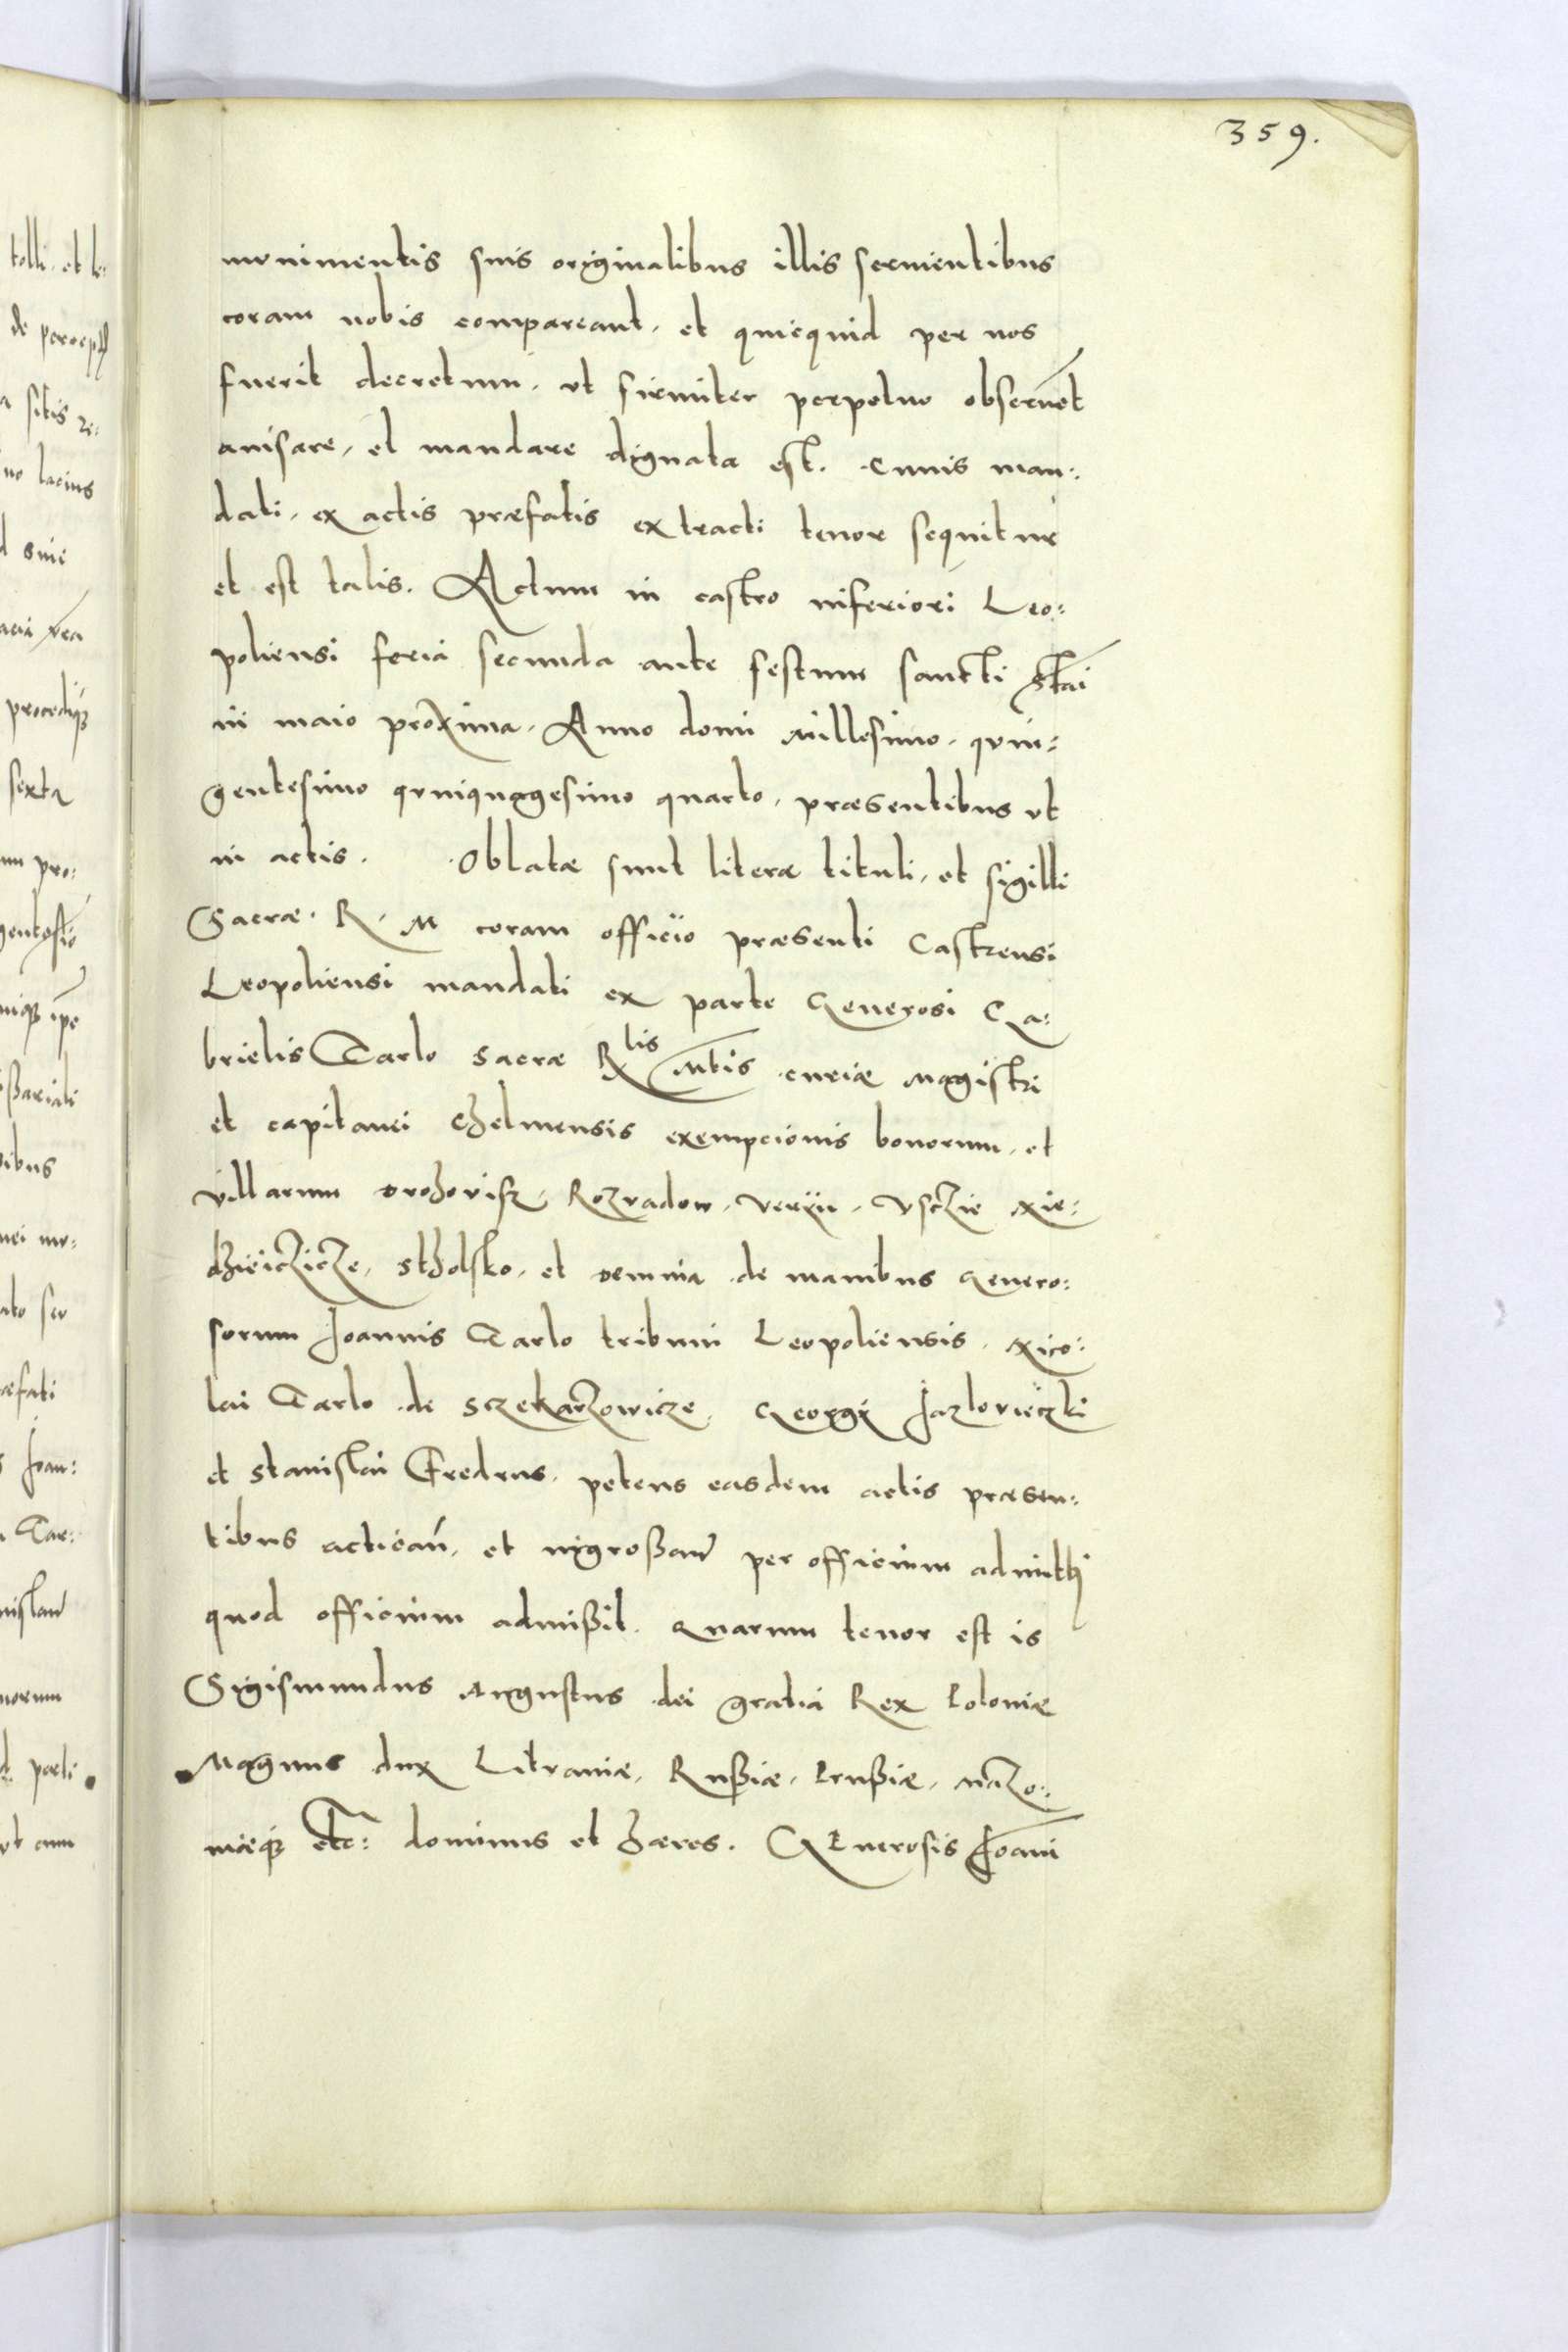 359.
monimentis suis originalibus illis servientibus
coram nobis compareant, et quicquid per nos
fuerit decretum, ut firmiter perpetuo observēt
avisare, et mandare dignata est. Cuius man:
dati, ex actis præfatis extracti tenor sequitur
et est talis. Actum in castro inferiori Leo:
poliensi feria secunda ante festum sancti Stai
in maio proxima. Anno domi Millesimo, quin:
gentesimo quinquagesimo quarto, præsentibus ut
in actis. Oblatæ sunt literæ tituli, et sigilli
Sacræ. R. M coram officio præsenti Castrensi
Leopoliensi mandati ex parte Generosi Ga:
brielis Tarlo Sacræ Rlis Mtis curiæ Magistri
et capitanei Chelmensis exempcionis bonorum, et
villarum Drohovisz, Rozvadow, Veryn, Usczie Nie:
dzieiczicze, Stholsko, et Demnia de manibus Genero:
sorum Joannis Tarlo tribuni Leopoliensis, Nico:
lai Tarlo de Sczekarzowicze, Georgy Jazlovieczki
et Stanislai Fredrus, petens easdem actis præsen:
tibus acticañ, et ingroßand per officium admitti
quod officium admißit. Quarum tenor est is
Sigismundus Augustus dei gratia Rex Poloniæ
Magnus dux Lituaniæ, Rußiæ, Prußiæ, Mazo:
viæq etc: dominus et hæres. GEnerosis Joani
tolli, et le:
sitis re:
no lacius
d sui
sexta
um pro:
ßariali
nei mo:
æfati
s Joan:
Tar:
norum
ut cum